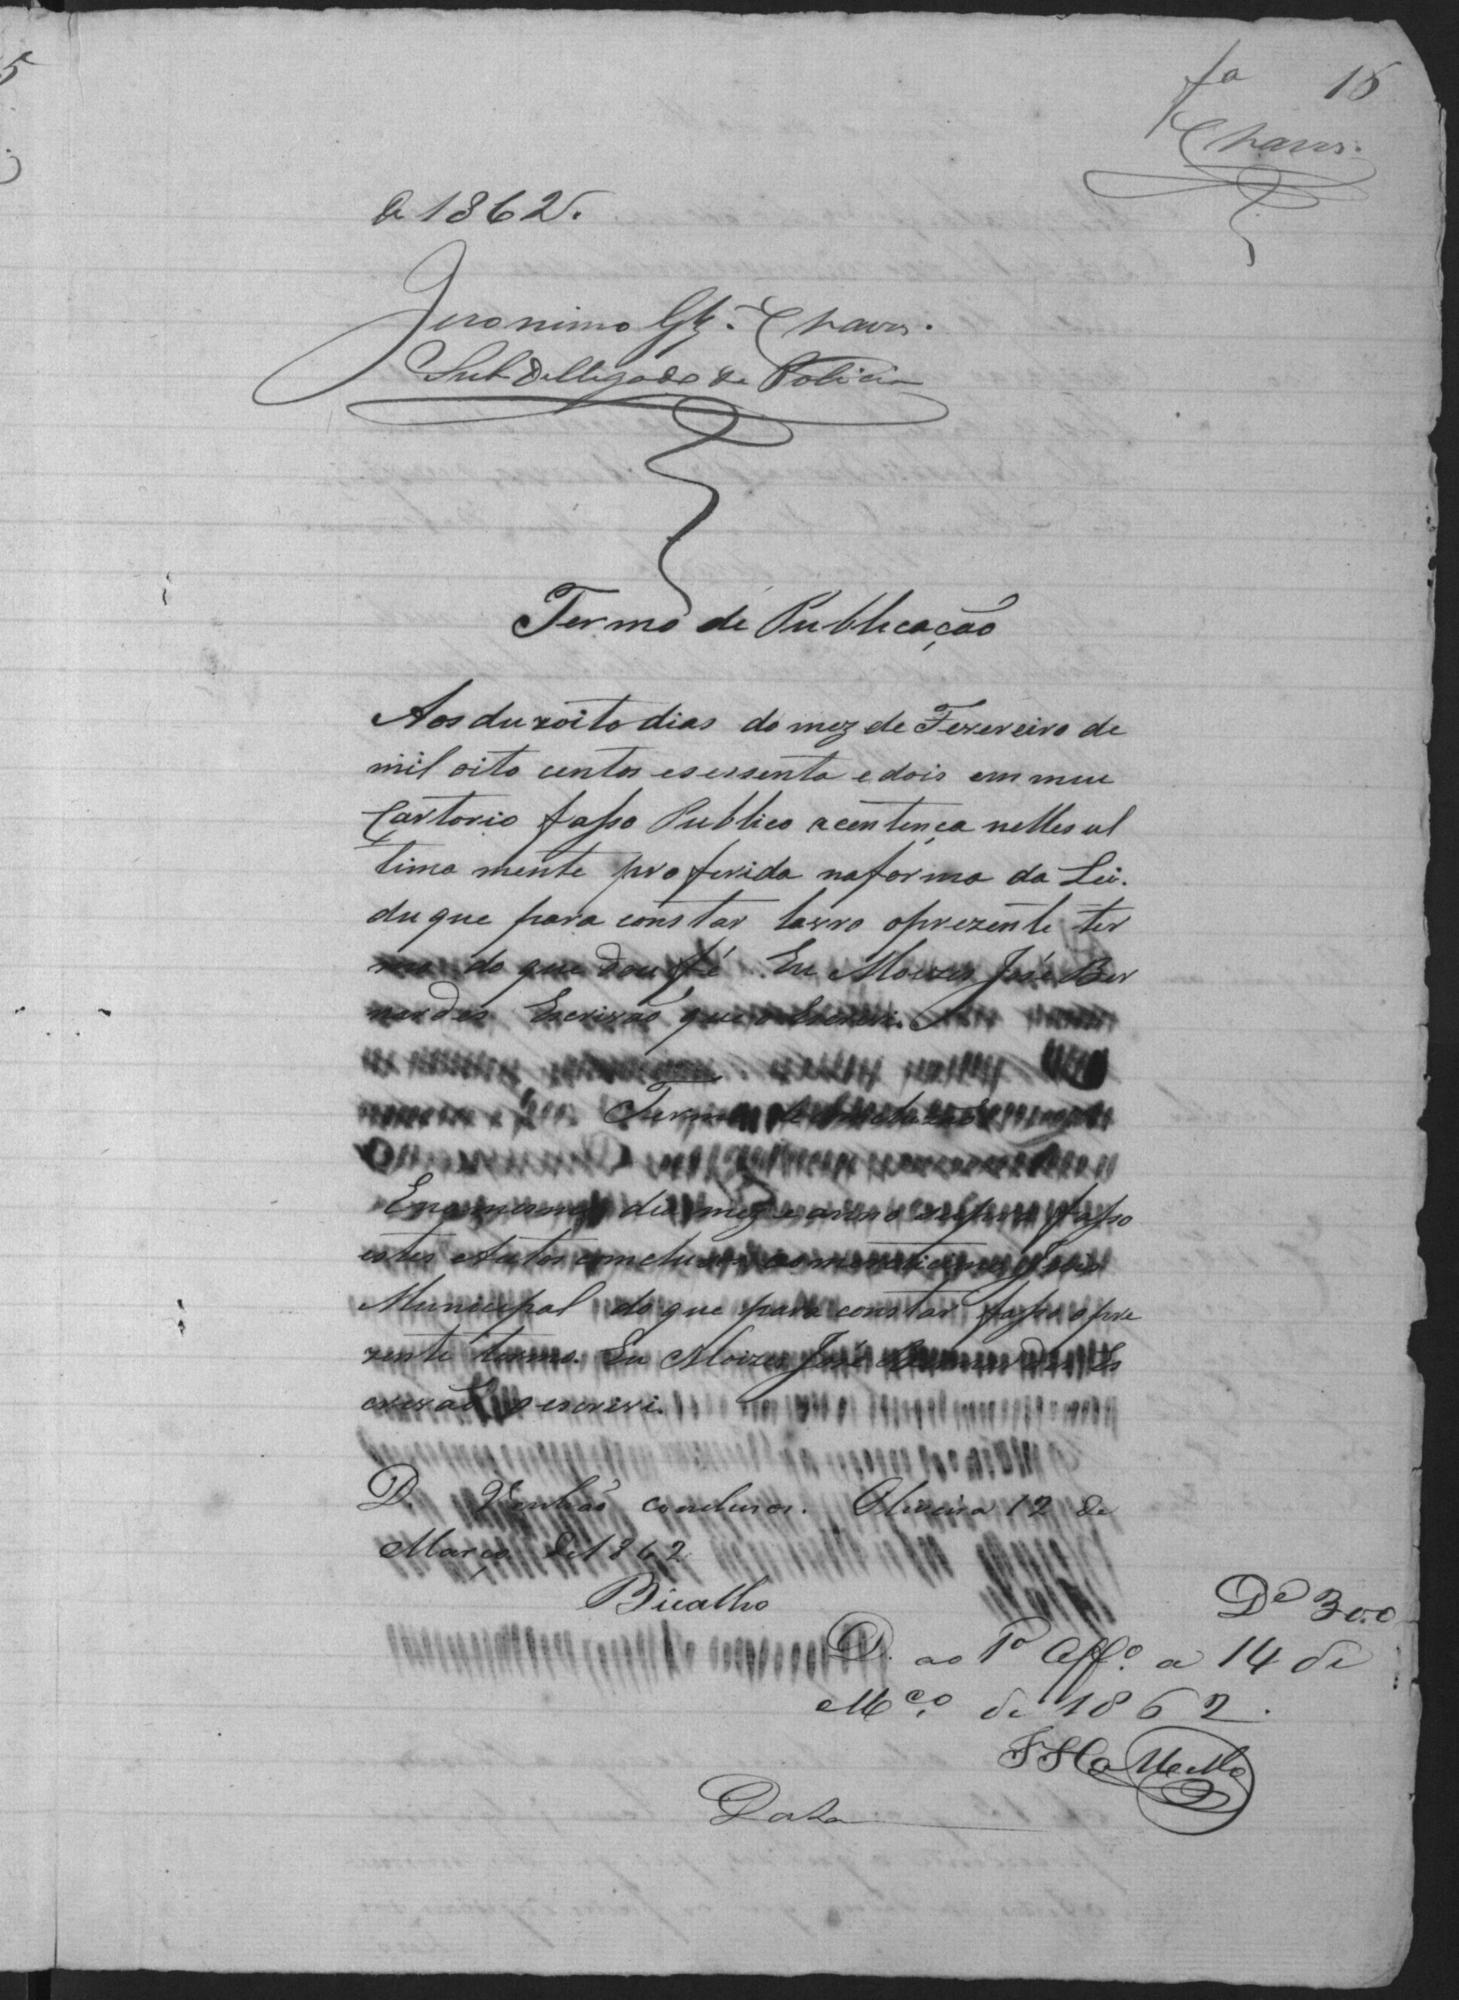 fª 15
Chaves.
de 1862.
Jeronimo Glz. Chaves.
Sub Dellegado de Policia
Termo de Publicação
Aos duzoito dias do mez de Fevereiro de
mil oito centos esessenta edois em meu
Cartorio fasso Publico acentença nelles ul
tima mente proferida nafórma da Lei.
du que para constar lavro oprezente ter
mo do que dou fé. Eu Moizes José Ber
nardes Escrivão que o Escrevi.
Termo de concluzão
Enomesmo dia mez e anno supra fasso
estes Autos concluzos ao Juis
Municipal do que para constar fasso opre
zente termo. Eu Moizes José Bernardes Es
crivão o escrevi.
D. Venhão concluzos. Oliveira 12 de
Março de 1862
Bicalho
Dº 300
D. ao 1º Offº. a 14 de
Mço. de 1862.
Data